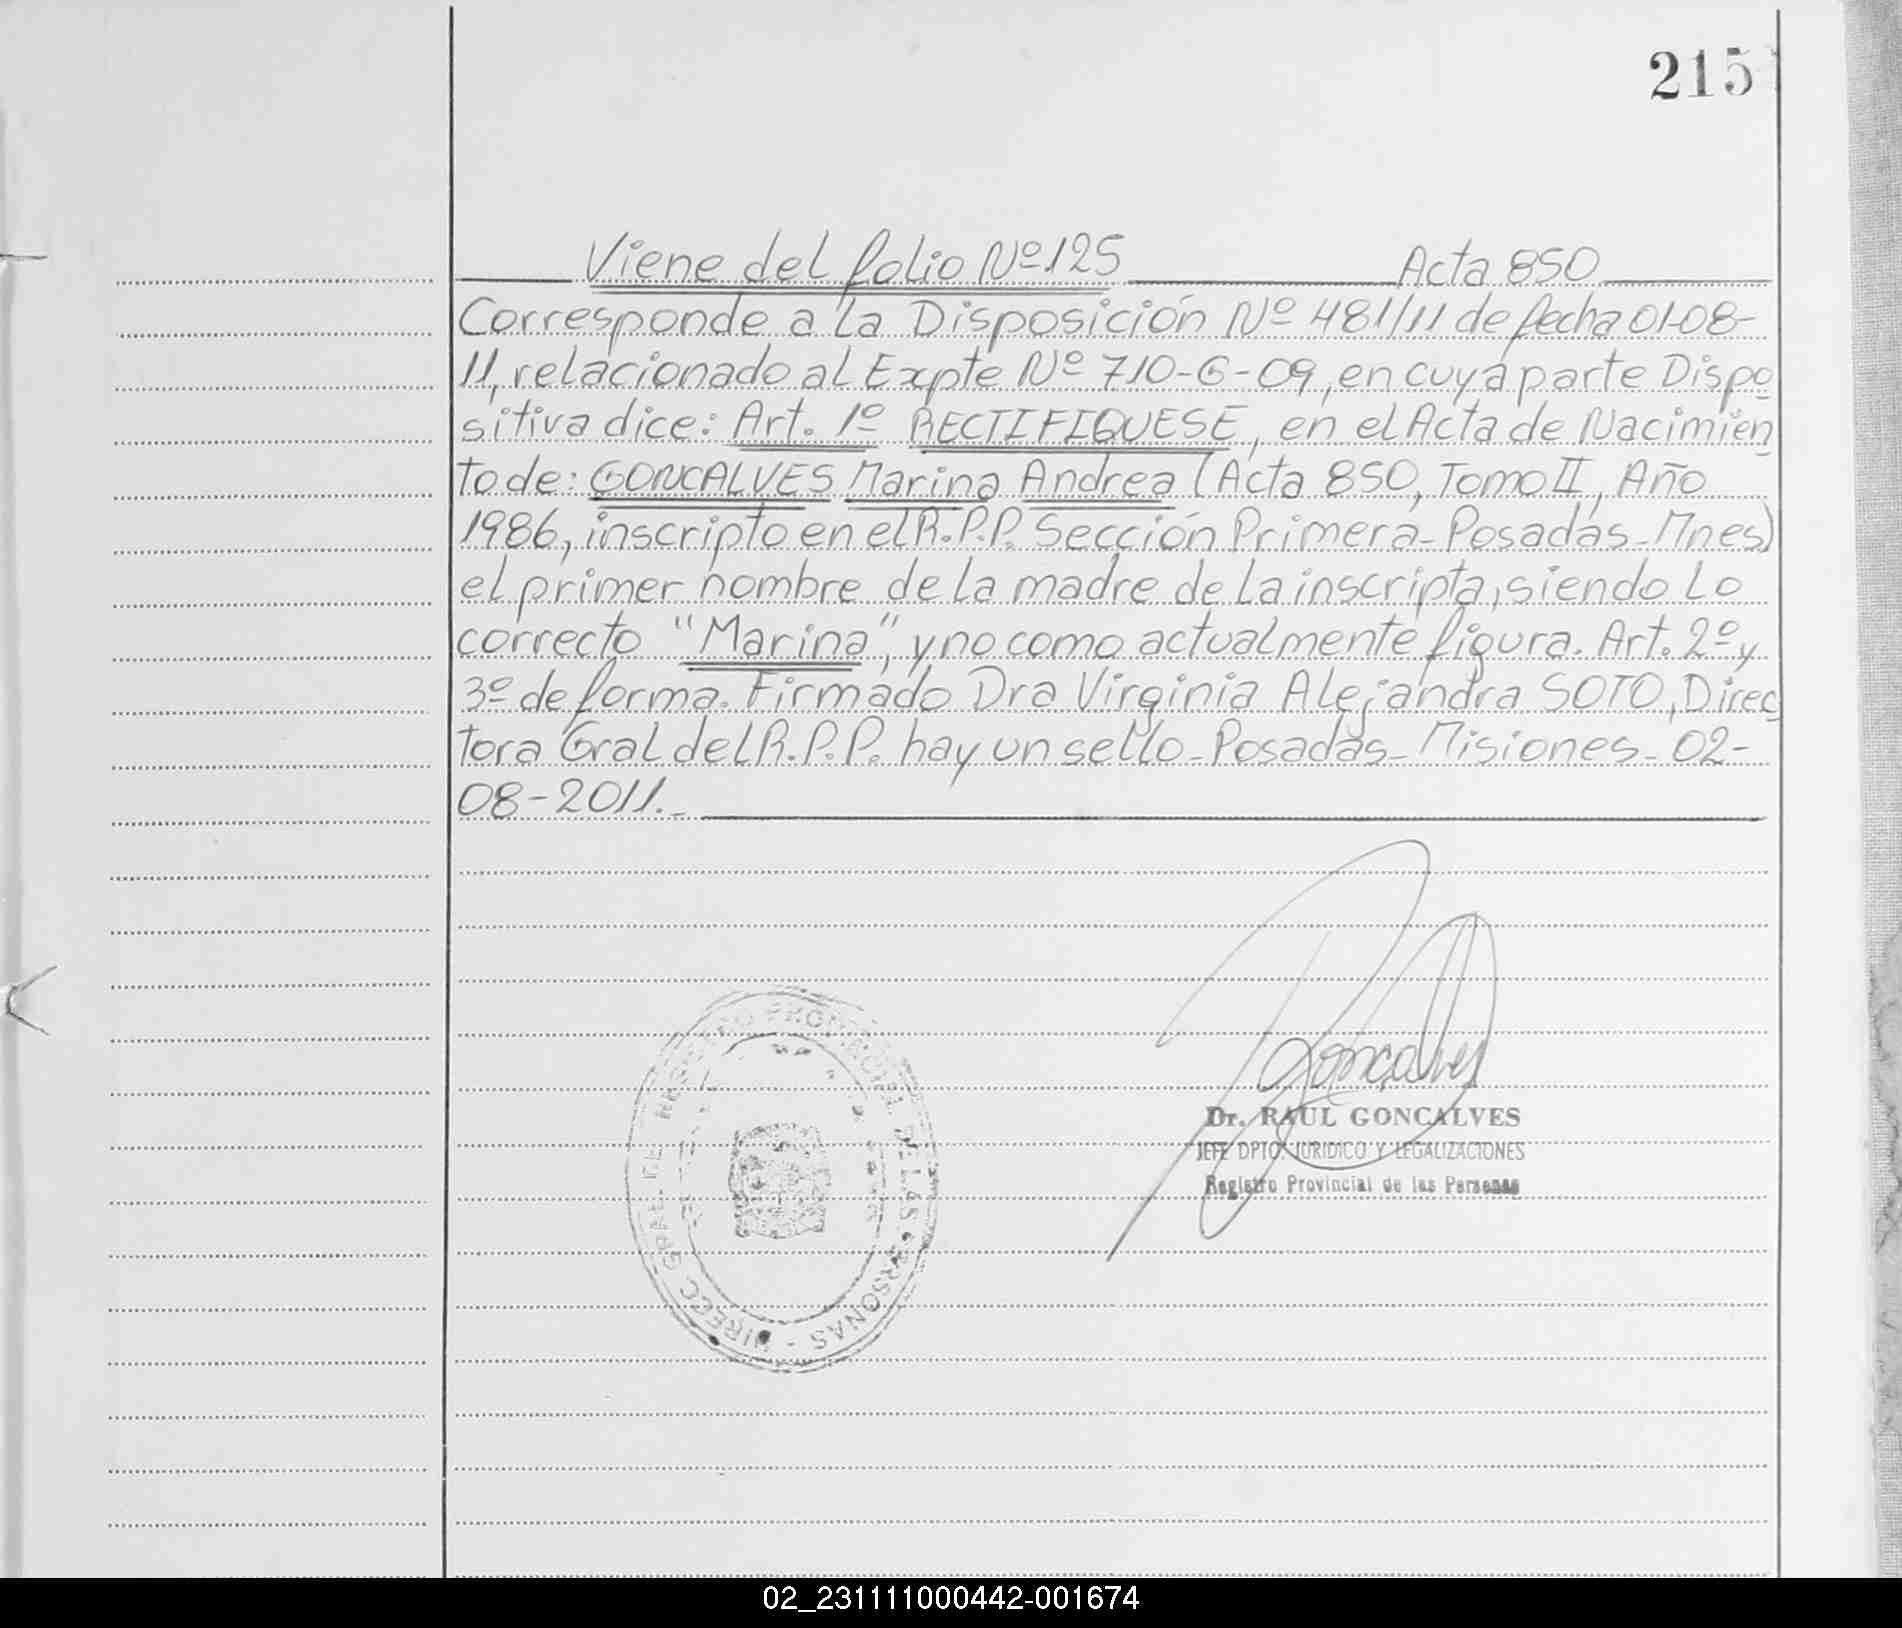 215
Viene del folio Nº 125 Acta 850
Corresponde a la Disposición Nº 481/11 de fecha 01-08-
11, relacionado al Expte Nº 710-G-09, en cuya parte Dispo
sitiva dice: Art. 1º RECTIFIQUESE, en el Acta de Nacimien
to de: GONCALVES Marina Andrea (Acta 850, Tomo II, Año
1986, inscripto en el R.P.P. Sección Primera - Posadas - Mnes)
el primer nombre de la madre de la inscripta, siendo lo
correcto "Marina", y no como actualmente figura. Art. 2º y
3º de forma. Firmado Dra Virginia Alejandra SOTO, Direc
tora Gral del R.P.P. hay un sello - Posadas - Misiones - 02-
08-2011.-
Goncalves
Dr. RAUL GONCALVES
JEFE DPTO. JURIDICO Y LEGALIZACIONES
Registro Provincial de las Personas
DIRECC GRAL DE REGISTRO PROVINCIAL DE LAS PERSONAS -
02_231111000442-001674